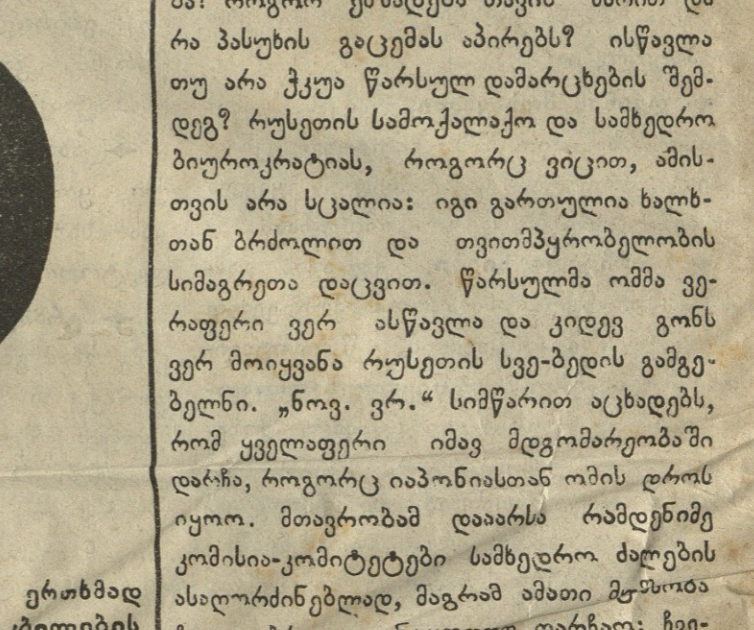 რა პასუხის გაცემას აპირებს? ისწავლა
თუ არა ჭკუა წარსულ დამარცხების შემ-
დეგ? რუსეთის სამოქალაქო და სამხედრო
ბიუროკრატიას, როგორც ვიცით, ამის-
თვის არა სცალია: იგი გართულია ხალხ-
თან ბრძოლით და თვითმპყრობელობის
სიმაგრეთა დაცვით. წარსულმა ომმა ვე-
რაფერი ვერ ასწავლა და კიდევ გონს
ვერ მოიყვანა რუსეთის სვე-ბედის გამგე-
ბელნი. „ნოვ. ვრ.“ სიმწარით აცხადებს,
რომ ყველაფერი იმავ მდგომარეობაში
დარჩა, როგორც იაპონიასთან ომის დროს
იყო. მთავრობამ დააარსა რამდენიმე
კომისია-კომიტეტები სამხედრო ძალების
ასაღორძინებლად, მაგრამ ამათი
ერთხმად